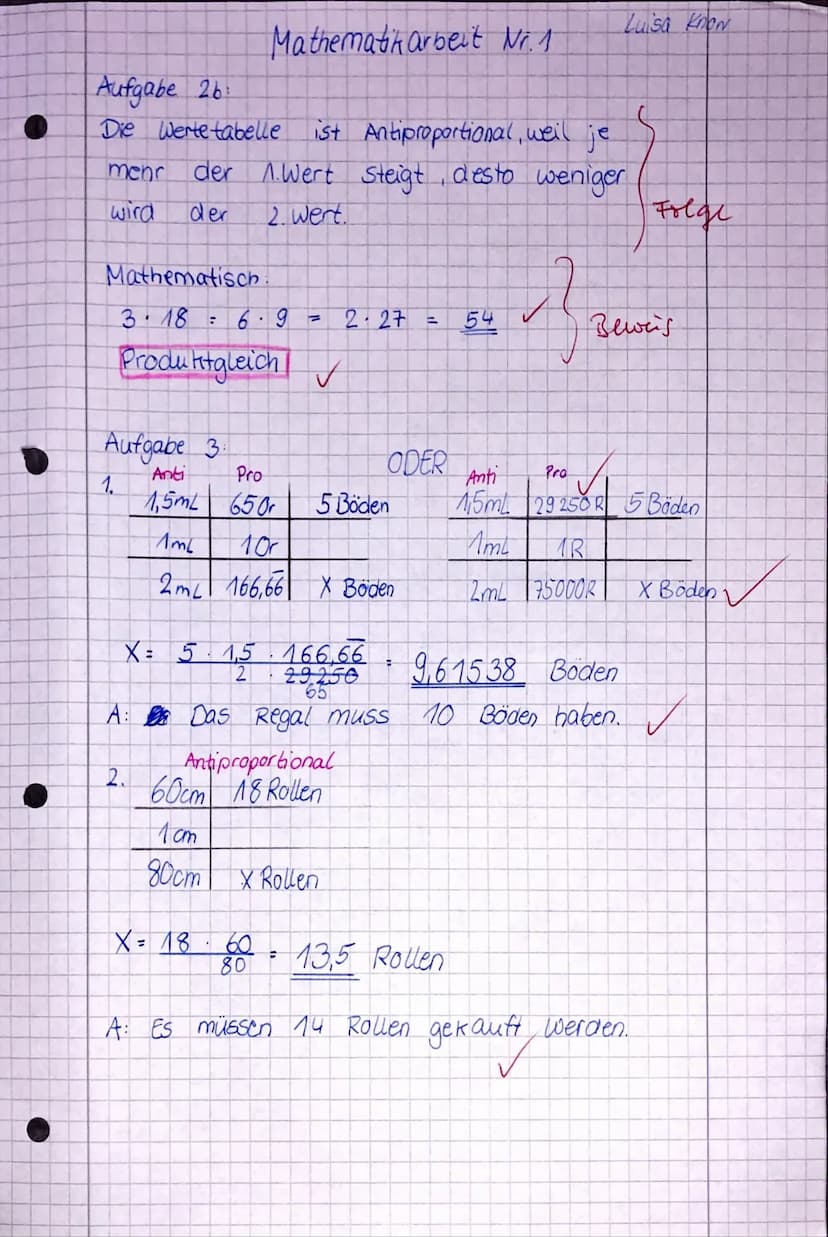 Mathematikarbeit Nr. 1
Luisa
Aufgabe 2b:
Die Wertetabelle ist Antiproportional, weil je
mehr der 1. Wert steigt, desto weniger
wird der 2. Wert.
Folge
Mathematisch:
3 · 18 = 6 · 9 = 2 · 27 = 54 ✓
Beweis
Produktgleich ✓
Aufgabe 3:
ODER
1. Anti Pro
1,5mL 65Or 5 Böden
1mL 1Or
2mL 166,66̅ X Böden
Anti Pro ✓
1,5mL 29250R 5 Böden
1mL 1R
2mL 75000R X Böden ✓
X = 5 · 1,5 · 166,66̅ / 2 · 29250 65 = 9,61538 Böden
A: Das Regal muss 10 Böden haben. ✓
Antiproportional
2. 60cm 18 Rollen
1cm
80cm X Rollen
X = 18 · 60 / 80 = 13,5 Rollen
A: Es müssen 14 Rollen gekauft werden. ✓